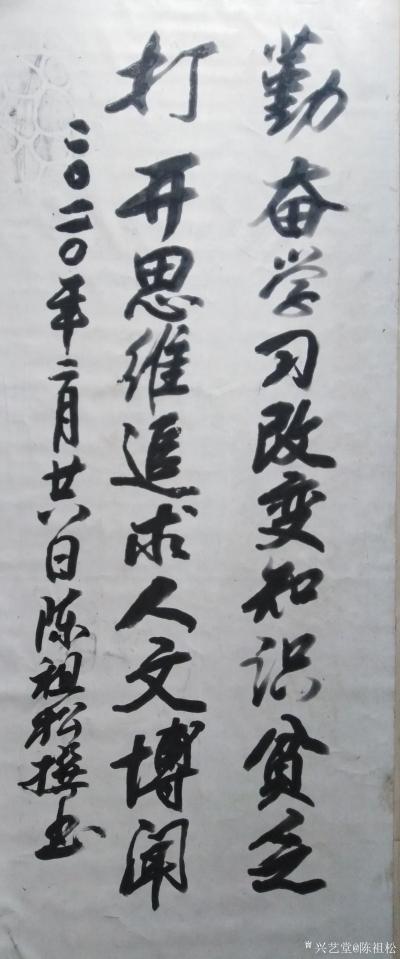 勤奋学习改变知识贫乏
打开思维追求人文博闻
二〇二〇年二月廿八日陈祖松撰书
兴艺堂@陈祖松